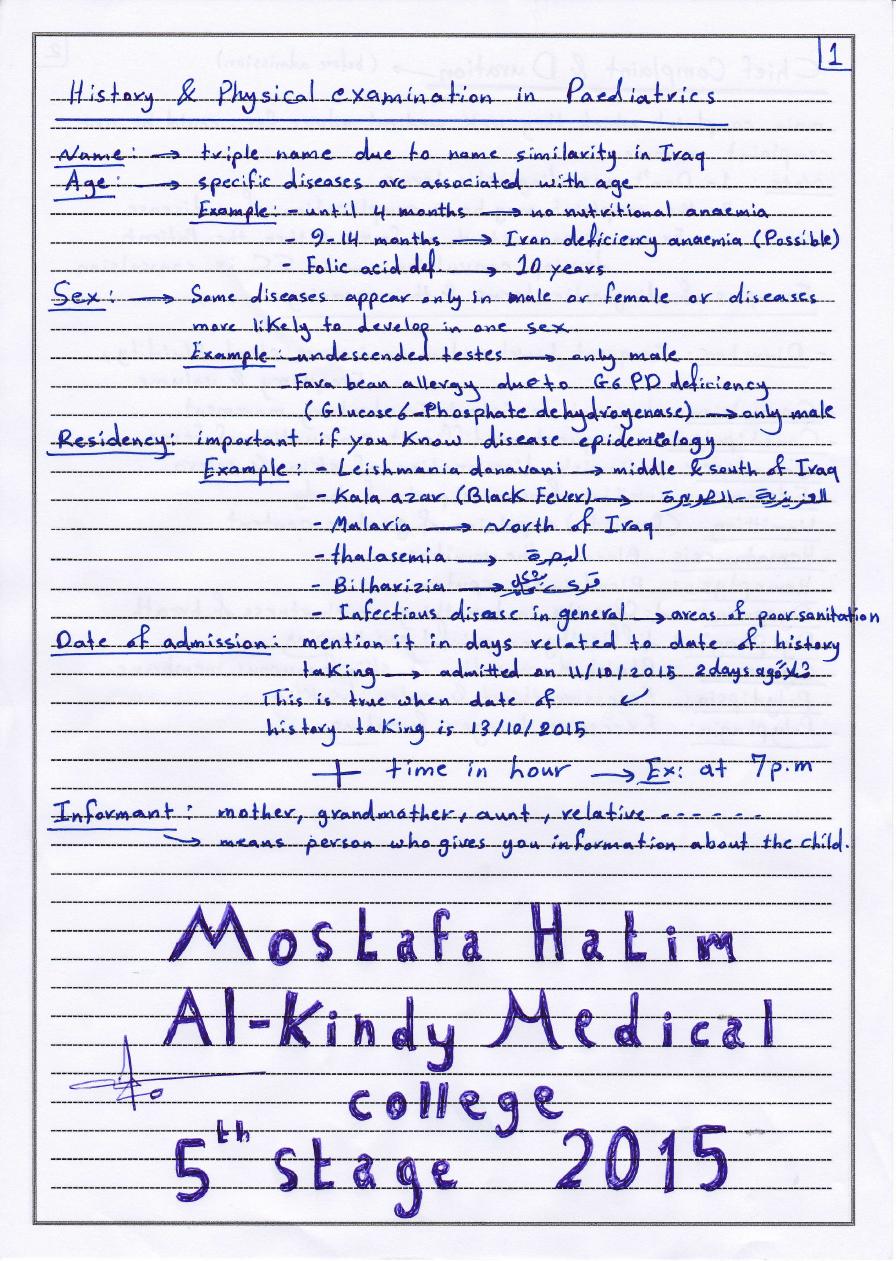 1
History & Physical examination in Paediatrics
Name: → triple name due to name similarity in Iraq
Age: → specific diseases are associated with age
Example: - until 4 months → no nutritional anaemia
- 9-14 months → Iron deficiency anaemia (Possible)
- Folic acid def. → 10 years
Sex: → Some diseases appear only in male or female or diseases
more likely to develop in one sex
Example: - undescended testes → only male
- Fava bean allergy due to G6PD deficiency
(Glucose6-Phosphate dehydrogenase) → only male
Residency: important if you Know disease epidemiology
Example: - Leishmania donavani → middle & south of Iraq
- Kala azar (Black Fever) → العزيزية - الصويرة
- Malaria → North of Iraq
- thalasemia → البصرة
- Bilharizia → قرى بشكل
- Infectious disease in general → areas of poor sanitation
Date of admission: mention it in days related to date of history
taking → admitted on 11/10/2015 2 days ago
This is true when date of
history taking is 13/10/2015
+ time in hour → Ex: at 7p.m
Informant: mother, grandmother, aunt, relative ------
→ means person who gives you information about the child.
Mostafa Hatim
Al-Kindy Medical
college
5th stage 2015